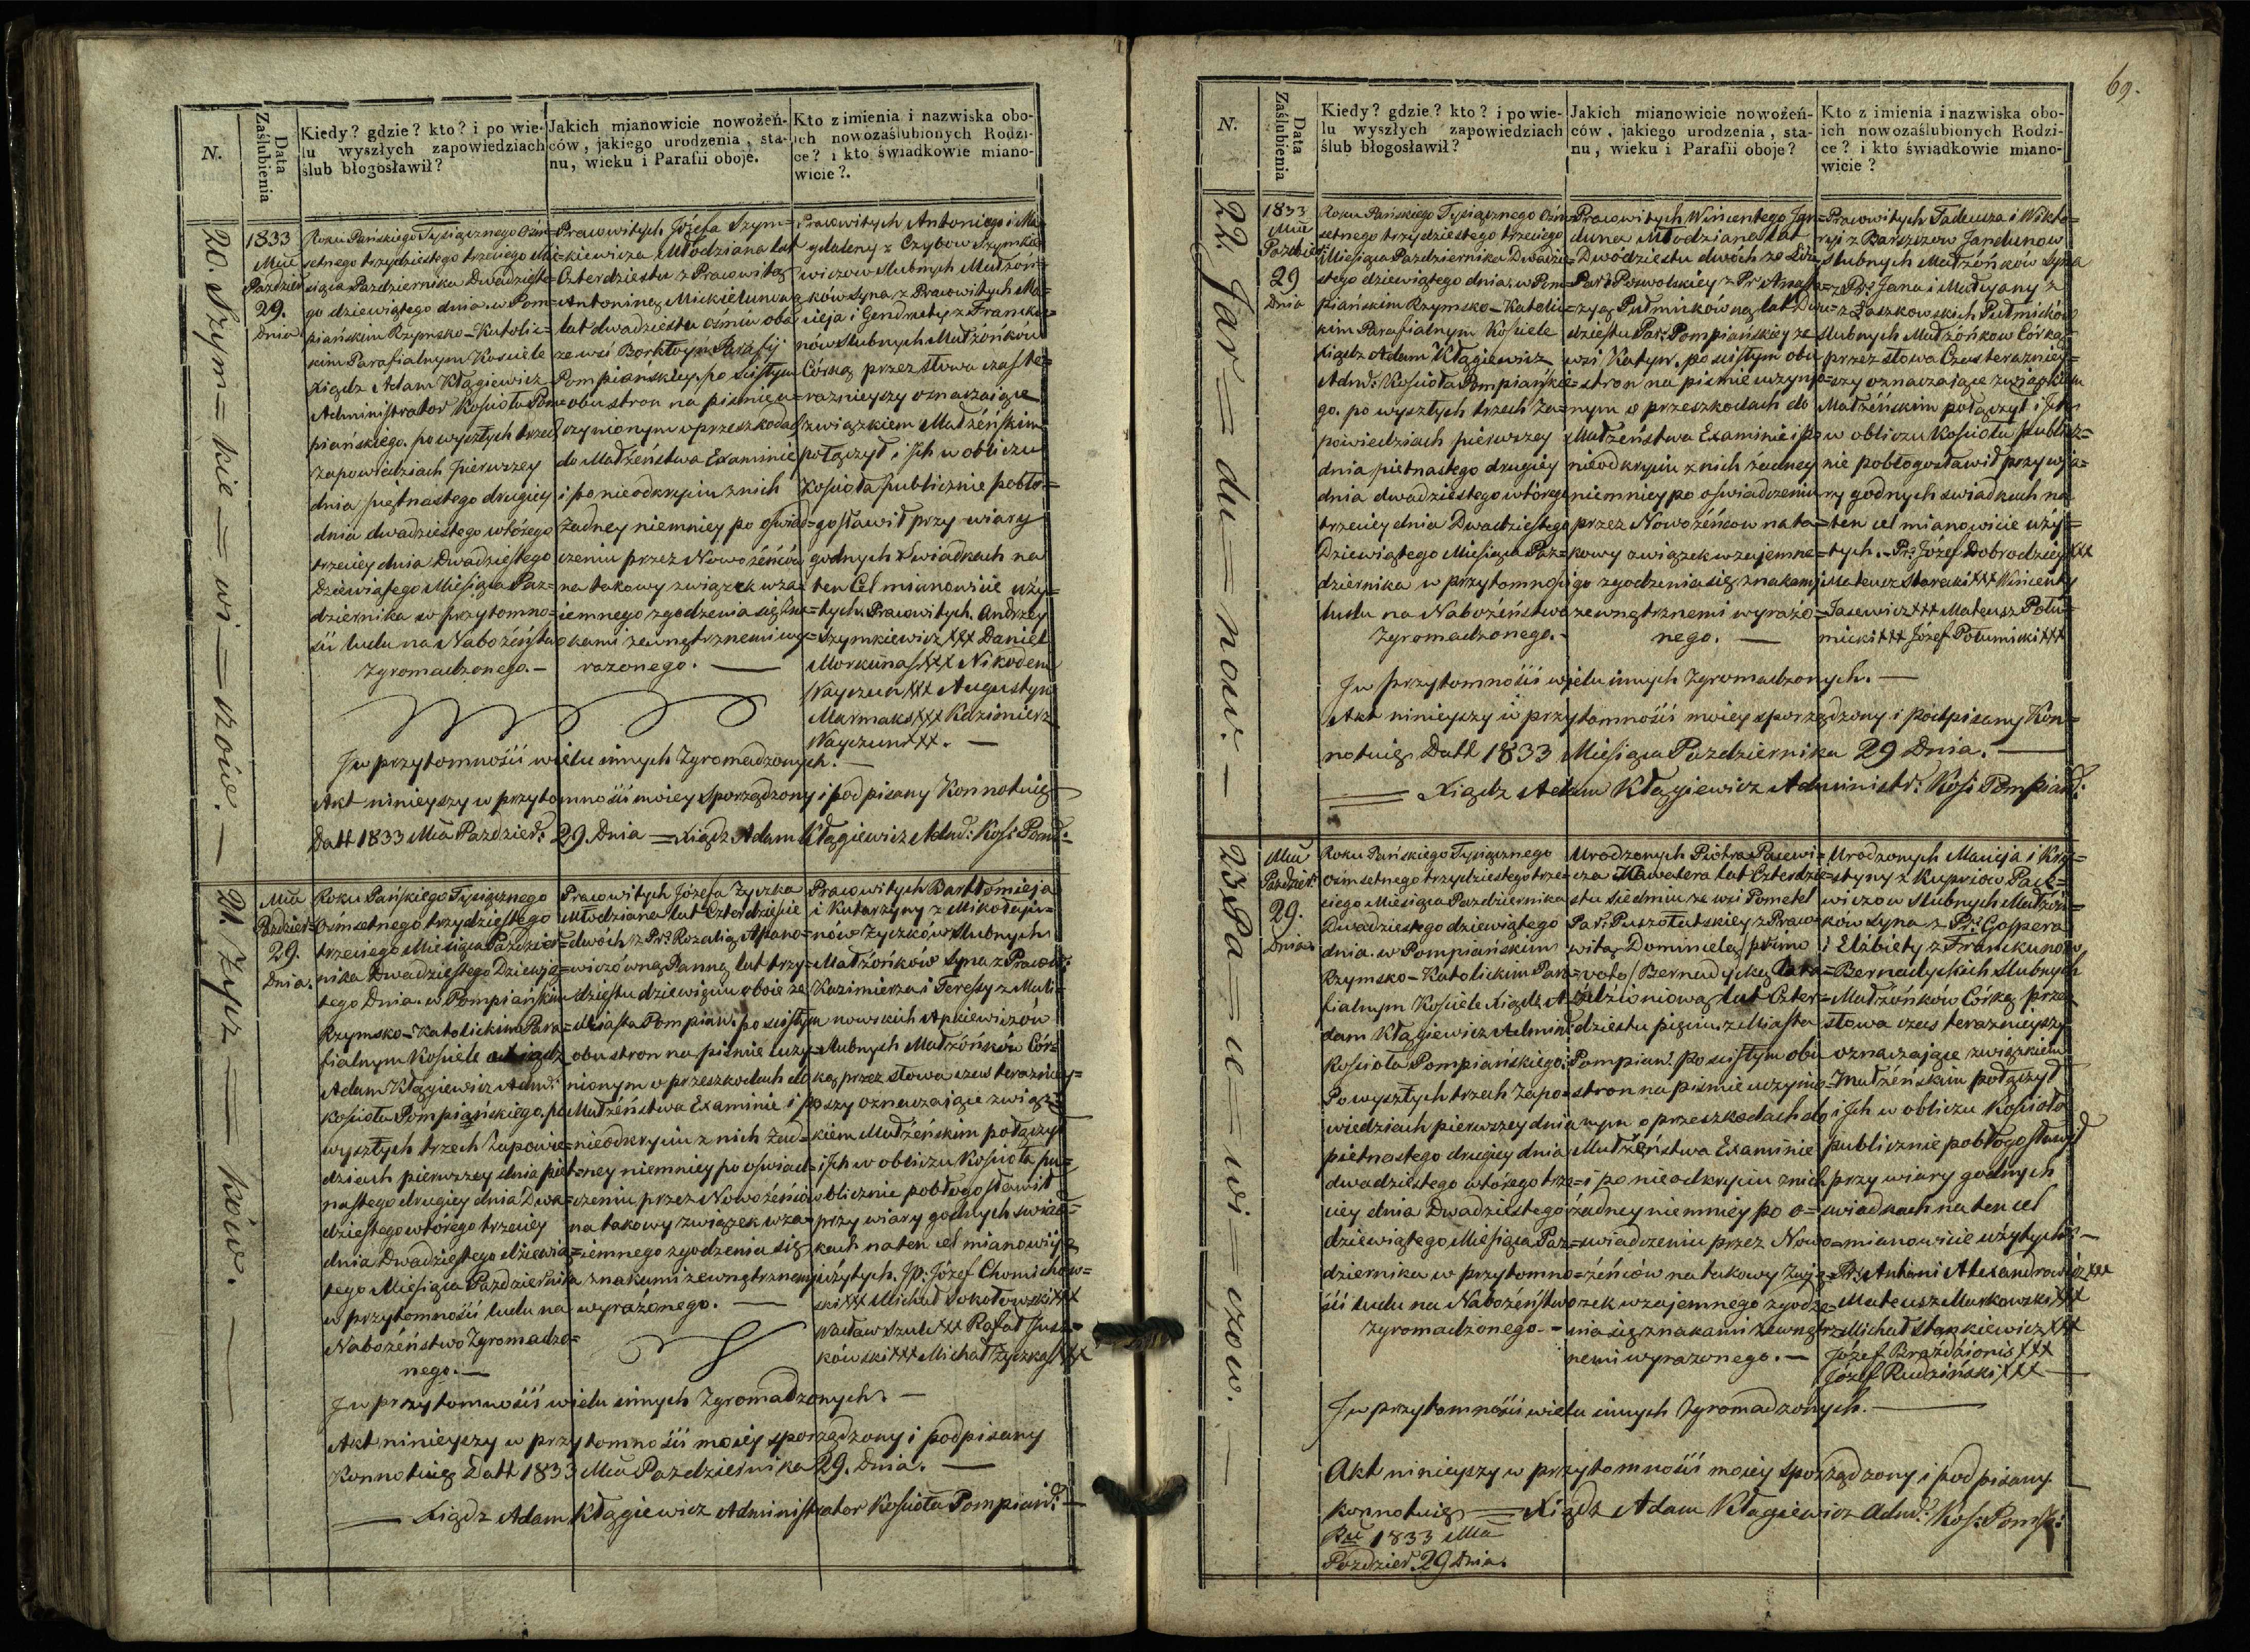 N.
Data
Zaślubienia
Kiedy? gdzie? kto? i po wie-
lu wyszłych zapowiedziach
ślub błogosławił?
Jakich mianowicie nowożeń-
ców, jakiego urodzenia, sta-
nu, wieku i Parafii oboje.
Kto z imienia i nazwiska obo-
ich nowozaślubionych Rodzi-
ce? i kto świadkowie miano-
wicie?.
20. Szym=kie=wi=czów.
1833
Mca
Paździer
29.
Dnia
Roku Pańskiego Tysiącznego Ośm=
setnego trzydziestego trzeciego Mie=
siąca Pazdziernika Dwudzieste=
go dziewiątego dnia. w Pom=
piańskim Rzymsko-Katolic=
kim Parafialnym Kosciele
Xiądz Adam Kłągiewicz
Administrator Kościoła Pom=
piańskiego. po wyszłych trzech
Zapowiedziach pierwszey
dnia piętnastego drugiey
dnia dwudziestego wtórego
trzeciey dnia Dwudziestego
Dziewiątego Miesiąca Paz=
dziernika w przytomno=
ści ludu na Nabożeństwo
zgromadzonego.-
Pracowitych Józefa Szym=
kiewicza Młodziana lat
Czterdziestu z Pracowitą
Antoniną Mickielunwną
lat dwadziestu ośmiu oboie
ze wsi Borkłoyń Parafij
Pompiańskiey. po scisłym
obu stron na pismie u=
czynionym o przeszkodach
do Małżeństwa Examinie
i po nieodkryciu z nich
Żadney niemniey po oświad=
czeniu przez Nowożeńców
na takowy związek wza=
iemnego zgodzenia się zna=
kami zewnętrznemi wy=
razonego.
Pracowitych Antoniego i Ma=
gdaleny z Czybow Szymkie=
wiczow Slubnych Małżon=
ków Syna, z Pracowitych Ma=
cieja i Gendruty z Franku=
now Slubnych Małżónków
Córką przez słowa czas te=
razniejszy oznaczaiące
związkiem Małżeńskim
połączył i Ich w obliczu
Kościoła publicznie pobło=
gosławił przy wiary
godnych Swiadkach na
ten Cel mianowicie uży=
tych. Pracowitych. Andrzey
Szymkiewicz XXX Daniel
Morkunas XXX Nikodem
Wayczun XXX Augustyn
Marmaks XXX Kazimierz
Wayczun XXX.
I w przytomności wielu innych Zgromadzonych.
Akt ninieyszy w przytomności moiey Sporządzony i podpisany Konnotuię
Datt 1833 Mca Paździer: 29. Dnia = Xiądz Adam Kłągiewicz Adm: Kos: Pom:
21. Życz=ków.
Mca
Paździer=
29.
Dnia.
Roku Pańskiego Tysiącznego
Ośmsetnego trzydziestego
trzeciego Miesiąca Paździer=
nika Dwudziestego Dziewią=
tego Dnia. w Pompiańskim
Rzymsko-Katolickim Para=
fialnym Kościele Xiądz
Adam Kłągiewicz Adm:
Kościoła Pompiańskiego. po
wyszłych trzech Zapowie=
dziach pierwszey dnia pięt=
nastego drugiey dnia Dwu=
dziestego wtórego trzeciey
dnia Dwudziestego dziewią=
tego Miesiąca Pazdziernika
w przytomności ludu na
Nabożeństwo Zgromadzo=
nego.
Pracowitych Józefa Zyczka
Młodziana lat Czterdziesie
dwóch z Pr: Rozalią Apano=
wiczówną Panną lat trzy=
dziestu dziewięciu oboie ze
Miasta Pompian. po scisłym
obu stron na pismie uczy=
nionym o przeszkodach do
Małżeństwa Examinie i po
nieodkryciu z nich Żad=
ney niemniey po oświad=
czeniu przez Nowożeńców
na takowy związek wza=
iemnego zgodzenia się
znakami zewnętrznemi
wyrażonego.
Pracowitych Bartłomieja
i Katarzyny z Mikołaju=
now Zyczków Slubnych
Małżonkow Syna z Pracow:
Kazimierza i Teressy z Mali=
nowskich Apkiewiczów
Slubnych Małżónków Cór=
ką przez słowa czas teraźniey=
szy oznaczaiące związ=
kiem Małżeńskim połączył
i Ich w obliczu Kościoła pu=
blicznie pobłogosławił
przy wiary godnych swiad=
kach na ten cel mianowicie
użytych. JP: Józef Chomichow=
ski XXX Michał Sokołowski XXX
Wacław Szulc XXX Rafał Jusz=
kówski XXX Michał Zyczka XXX
I w przytomności wielu innych Zgromadzonych.
Akt ninieyszy w przytomności moiey sporządzony i podpisany
Konnotuię Datt 1833 Mca Pazdziernika 29. Dnia.
Xiądz Adam Kłągiewicz Administrator Kościoła Pompiań:
69.
N.
Data
Zaślubienia
Kiedy? gdzie? kto? i po wie-
lu wyszłych zapowiedziach
ślub błogosławił?
Jakich mianowicie nowożeń-
ców, jakiego urodzenia, sta-
nu, wieku i Parafii oboje?
Kto z imienia i nazwiska obo-
ich nowozaślubionych Rodzi-
ce? i kto świadkowie miano-
wicie?
22. Jar=du=now.
1833
Mca
Paździer:
29
Dnia
Roku Pańskiego Tysiącznego Ośm=
setnego trzydziestego trzeciego
Miesiąca Pazdziernika Dwudzie=
stego dziewiątego dnia. w Pom=
piańskim Rzymsko-Katolic=
kim Parafialnym Kościele
Xiądz Adam Kłągiewicz
Adm: Kościoła Pompiańskie=
go. po wyszłych trzech Za=
powiedziach pierwszey
dnia piętnastego drugiey
dnia dwudziestego wtórego
trzeciey dnia Dwudziestego
Dziewiątego Miesiąca Paz=
dziernika w przytomności
ludu na Nabożeństwo
Zgromadzonego.-
Pracowitych Wincentego Jar=
duna Młodziana lat
Dwódziestu dwóch ze
Par: Poswolskiey z Pr: Anasta=
zyą Pułmikówną lat Dwu=
dziestu Par: Pompiańskiey ze
wsi Katyn. po scisłym obu
stron na pismie uczynio=
nym o przeszkodach do
Małżeństwa Examinie i po
nieodkryciu z nich żadney
niemniey po oświadczeniu
przez Nowożeńców na ta=
kowy związek wzajemne=
go zgodzenia się znakami
zewnętrznemi wyrażo=
nego.
Pracowitych Tadeusza i Wikto=
ryi z Barszzow Jardunow
Slubnych Małżónków Syna
z Pr: Jana i Maryany z
Łaszkowskich Pułmików
Slubnych Małżónkow Córką
przez słowa Czas terazniey=
szy oznaczaiące związkiem
Małżeńskim połączył i Ich
w obliczu Kościoła publicz=
nie pobłogosławił przy wia=
ry godnych swiadkach na
ten cel mianowicie uży=
tych. Pr: Józef Dobrodziey XXX
Mateusz Starecki XXX Wincenty
Jasewicz XXX Mateusz Połu=
micki XXX Józef Połumicki XXX
I w przytomności wielu innych Zgromadzonych.
Akt ninieyszy w przytomności moiey sporządzony i podpisany Kon=
notuię Datt 1833 Miesiąca Pazdziernika 29 Dnia.
Xiądz Adam Kłągiewicz Administr: Kosc: Pompiań:
23 Pa=ce=wi=czow.
Mca
Paździer:
29.
Dnia
Roku Pańskiego Tysiącznego
Ośmsetnego trzydziestego trze=
ciego Miesiąca Pazdziernika
Dwudziestego dziewiątego
dnia. w Pompiańskim
Rzymsko-Katolickim Para=
fialnym Kościele Xiądz A=
dam Kłągiewicz Admin:
Kościoła Pompiańskiego.
Po wyszłych trzech Zapo=
wiedziach pierwszey dnia
piętnastego drugiey dnia
dwudziestego wtórego trze=
ciey dnia Dwudziestego
dziewiątego Miesiąca Paz=
dziernika w przytomno=
ści ludu na Nabożeństwo
zgromadzonego.-
Urodzonych Piotra Pacewi=
cza Kawalera lat Czterdzie=
stu siedmiu ze wsi Pometel
Par: Puszołatskiey z Praco=
witą Dominicelą (primo
voto) Bernadycką
lat Czter=
dziestu pięciu. z Miasta
Pompian: po scisłym obu
stron na pismie uczynio=
nym o przeszkodach do
Małżeństwa Examinie
i po nieodkryciu z nich
żadney niemniey po o=
swiadczeniu przez Nowo=
żeńców na takowy zwią=
zek wzajemnego zgodze=
nia się znakami zewnętrz=
nemi wyrazonego.
Urodzonych Macieja i Kry=
styny z Kupriow Pace=
wiczow Slubnych Małżon=
ków Syna z Pr: Gaspera
i Elżbiety z Franckunow
Bernadyckich Slubnych
Małżónków Córką przez
słowa czas terazniejszy
oznaczaiące związkiem
Małżeńskim połączył
i Ich w obliczu Kościoła
publicznie pobłogosławił
przy wiary godnych
swiadkach na ten cel
mianowicie użytych.
Pr: Antoni Alexandrowicz XXX
Mateusz Markowski XXX
Michał Stankiewicz XXX
Józef Brażdżionis XXX
Józef Rudziński XXX
I w przytomności wielu innych Zgromadzonych.
Akt ninieyszy w przytomności moiey sporządzony i podpisany
Konnotuię Xiądz Adam Kłągiewicz Adm: Kos: Pomp:
Rku 1833 Mca
Paździer. 29 Dnia.